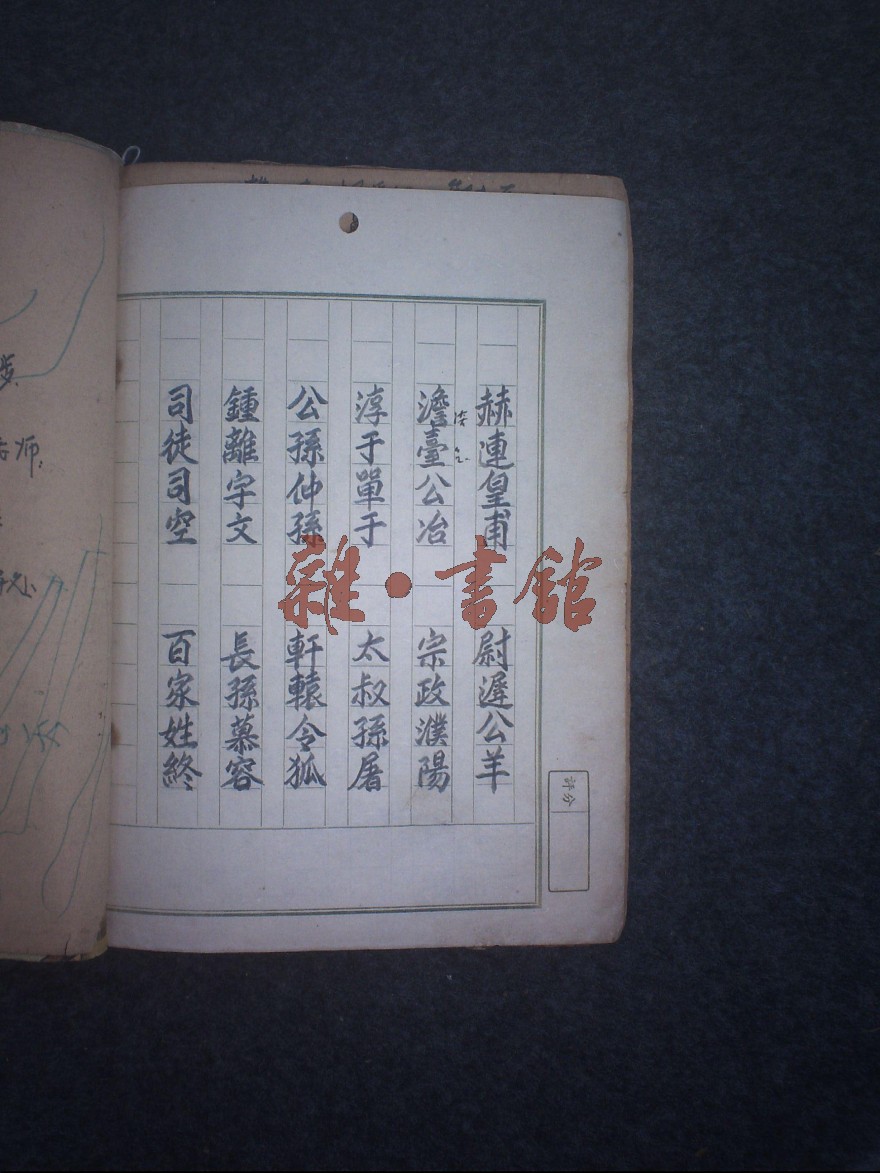 赫連皇甫 尉遲公羊
澹臺公冶 宗政濮陽
淳于單于 太叔孫屠
公孫仲孫 軒轅令狐
鍾離宇文 長孫慕容
司徒司空 百家姓終
評分
雜·書館
师